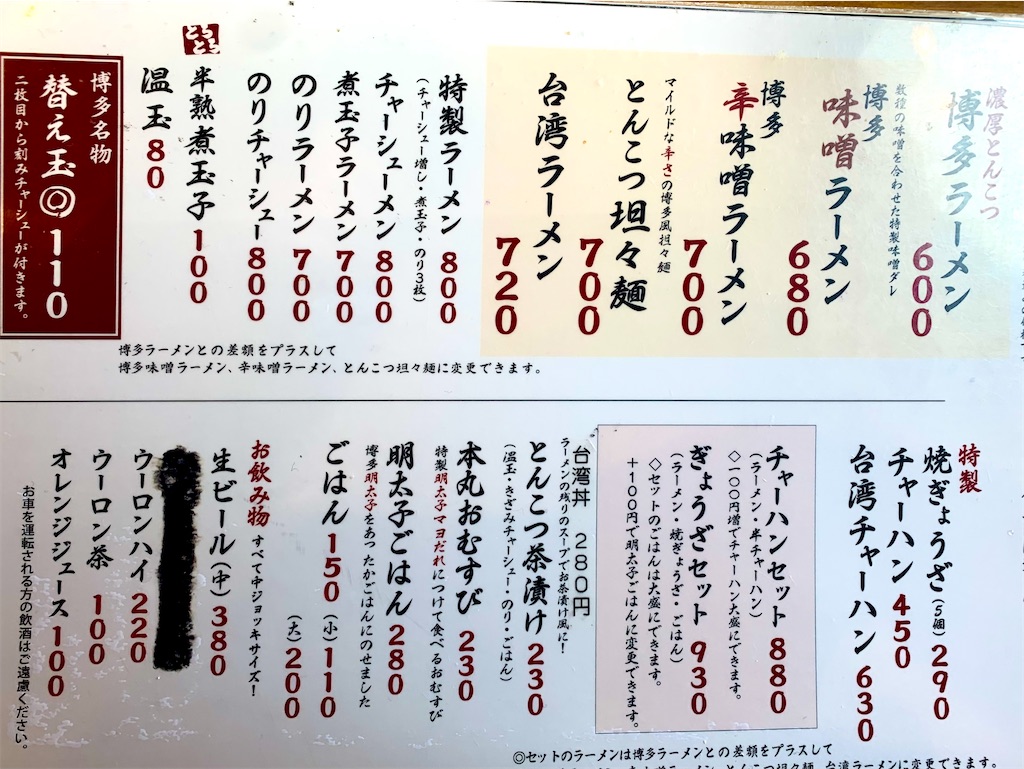 濃厚とんこつ
博多ラーメン 600
数種の味噌を合わせた特製味噌ダレ
博多
味噌ラーメン 680
博多
辛味噌ラーメン 700
マイルドな辛さの博多風担々麺
とんこつ坦々麺 700
台湾ラーメン 720
特製ラーメン 800
(チャーシュー増し・煮玉子・のり3枚)
チャーシューメン 800
煮玉子ラーメン 700
のりラーメン 700
のりチャーシュー 800
とろとろ
半熟煮玉子 100
温玉 80
博多名物
替え玉◎110
二枚目から刻みチャーシューが付きます。
博多ラーメンとの差額をプラスして
博多味噌ラーメン、辛味噌ラーメン、とんこつ坦々麺に変更できます。
特製
焼ぎょうざ(5個) 290
チャーハン 450
台湾チャーハン 630
チャーハンセット 880
(ラーメン・半チャーハン)
◇一〇〇円増でチャーハン大盛にできます。
ぎょうざセット 930
(ラーメン・焼ぎょうざ・ごはん)
◇セットのごはんは大盛にできます。
+100円で明太子ごはんに変更できます。
台湾丼 280円
ラーメンの残りのスープでお茶漬け風に!
とんこつ茶漬け 230
(温玉・きざみチャーシュー・のり・ごはん)
本丸おむすび 230
特製明太子マヨだれにつけて食べるおむすび
明太子ごはん 280
博多明太子をあったかごはんにのせました
ごはん 150 (小)110
(大)200
お飲み物 すべて中ジョッキサイズ!
生ビール(中) 380
ウーロンハイ 220
ウーロン茶 100
オレンジジュース 100
お車を運転される方の飲酒はご遠慮ください。
◎セットのラーメンは博多ラーメンとの差額をプラスして
ラーメン、とんこつ坦々麺、台湾ラーメンに変更できます。